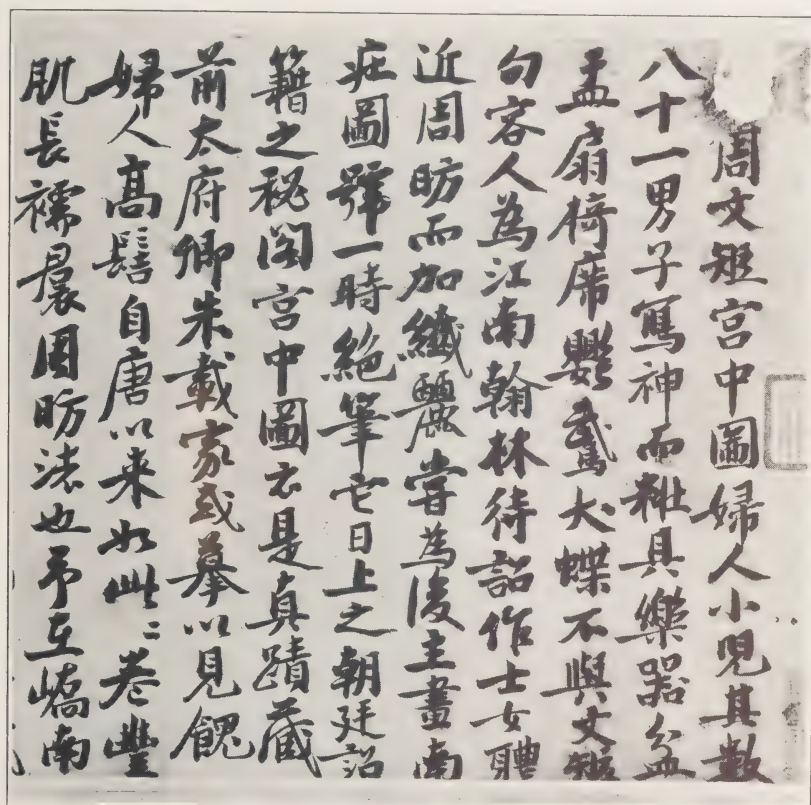 周文矩宮中圖婦人小児其數
八十一男子寫神而粧具樂器盆
盂扇椅席鸚鵡犬蝶不與文矩
句容人為江南翰林待詔作士女體
近周昉而加纖麗嘗為後主畫南
莊圖號一時絕筆它日上之朝廷詔
籍之秘閣宮中圖云是真蹟藏
前太府卿朱載家或摹以見餽
婦人高髻自唐以来如此〻卷豐
肌長襦裠周昉法也予在嶠南